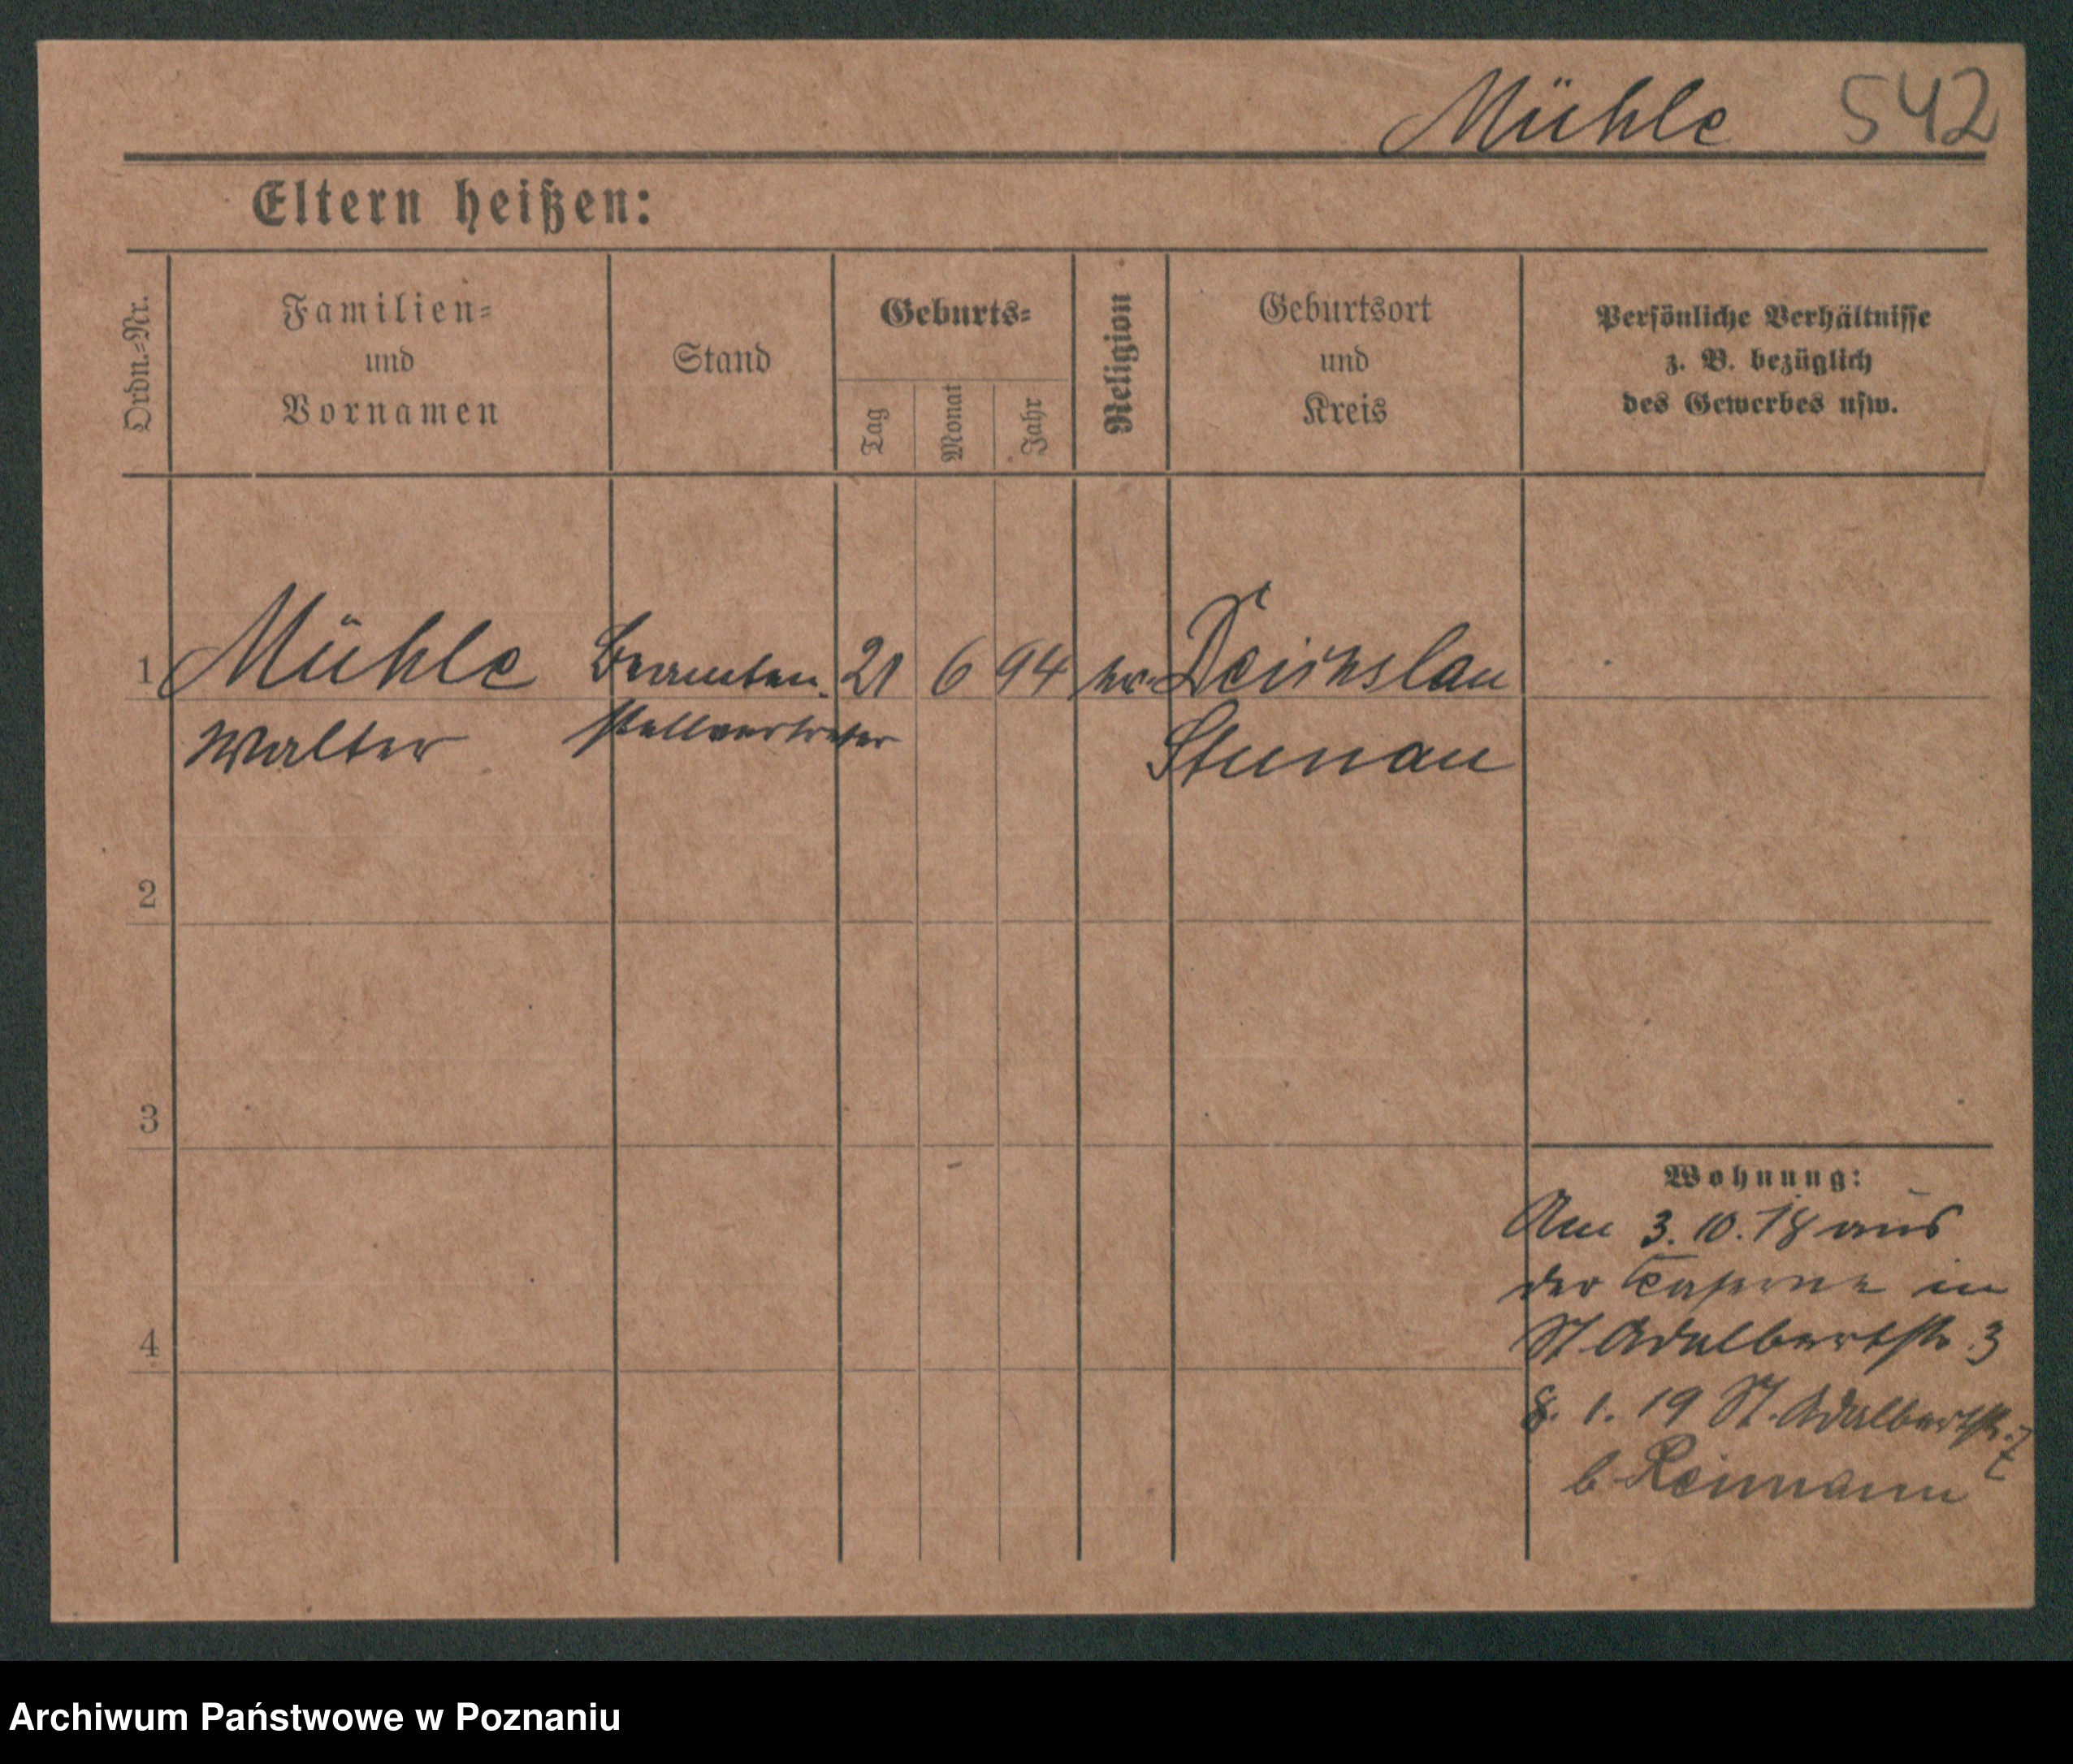 Mühle 542
Eltern heißen:
Ordn.=Nr.
Familien=
und
Vornamen
Stand
Geburts=
Tag
Monat
Jahr
Religion
Geburtsort
und
Kreis
Persönliche Verhältnisse
z. B. bezüglich
des Gewerbes usw.
1 Mühle Beamten 21 6 94
Walter stellvertreter
2
3
4
Wohnung:
Am 3. 10. 18 aus
der Kaserne in
St Adalbertstr. 3
8. 1. 19 St. Adalbertstr. 7
b Reimann
Archiwum Państwowe w Poznaniu